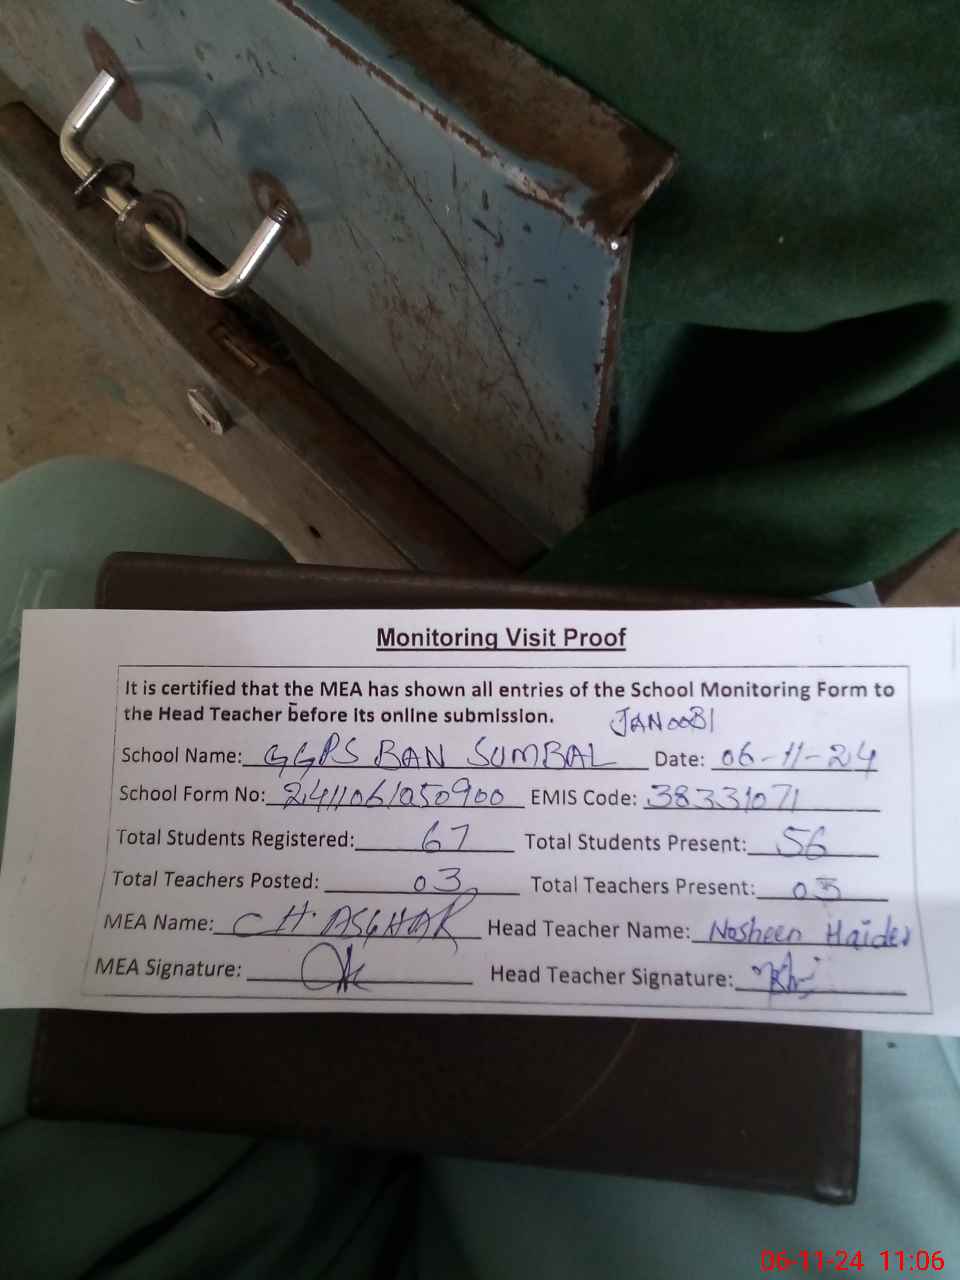 Monitoring Visit Proof
It is certified that the MEA has shown all entries of the School Monitoring Form to
the Head Teacher before its online submission.
JANOOBI
School Name: GGPS BAN SUMBAL Date: 06-11-24
School Form No: 241106/050900 EMIS Code: 38331071
Total Students Registered: 67 Total Students Present: 56
Total Teachers Posted: 03 Total Teachers Present: 03
MEA Name: CH. ASGHAR Head Teacher Name: Nosheen Haider
MEA Signature: Head Teacher Signature:
06-11-24 11:06